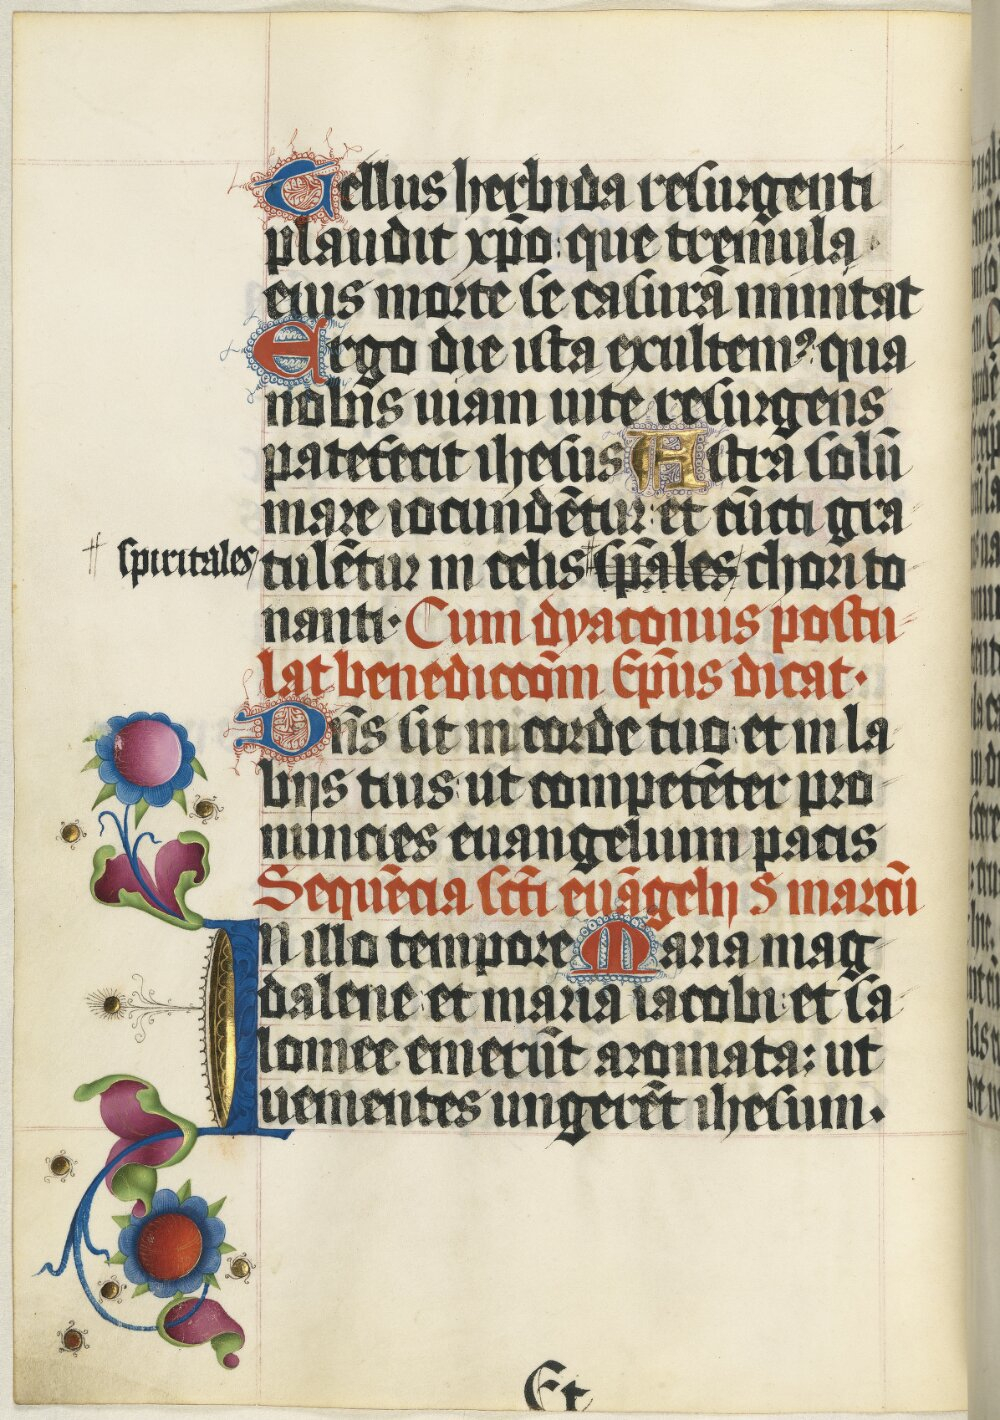 Tellus herbida resurgenti
plaudit xp̄o: que trem̄ula
eius morte se casurā minitat
Ergo die ista exultemꝰ: qua
nobis uiam uite resurgens
patefecit ihesus Astra solū
mare iocundētur: et cūcti gra
spiritales
tulētur in celis sp̄ales chori to
nanti. Cum dyaconus postu
lat benediccōm Ep̄us dicat.
Dn̄s sit in corde tuo: et in la
bijs tuis: ut competēter pro
nuncies euangelium pacis
Sequēcia scti euāgelij S marcū
In illo tempore Maria mag
dalene: et maria iacobi: et sa
lomee emerūt aromata: ut
uenientes ungerēt ihesum.
Et